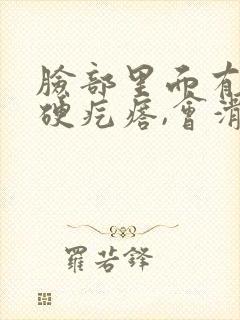 臉部里面有
硬疙瘩,會消
羅若鋒